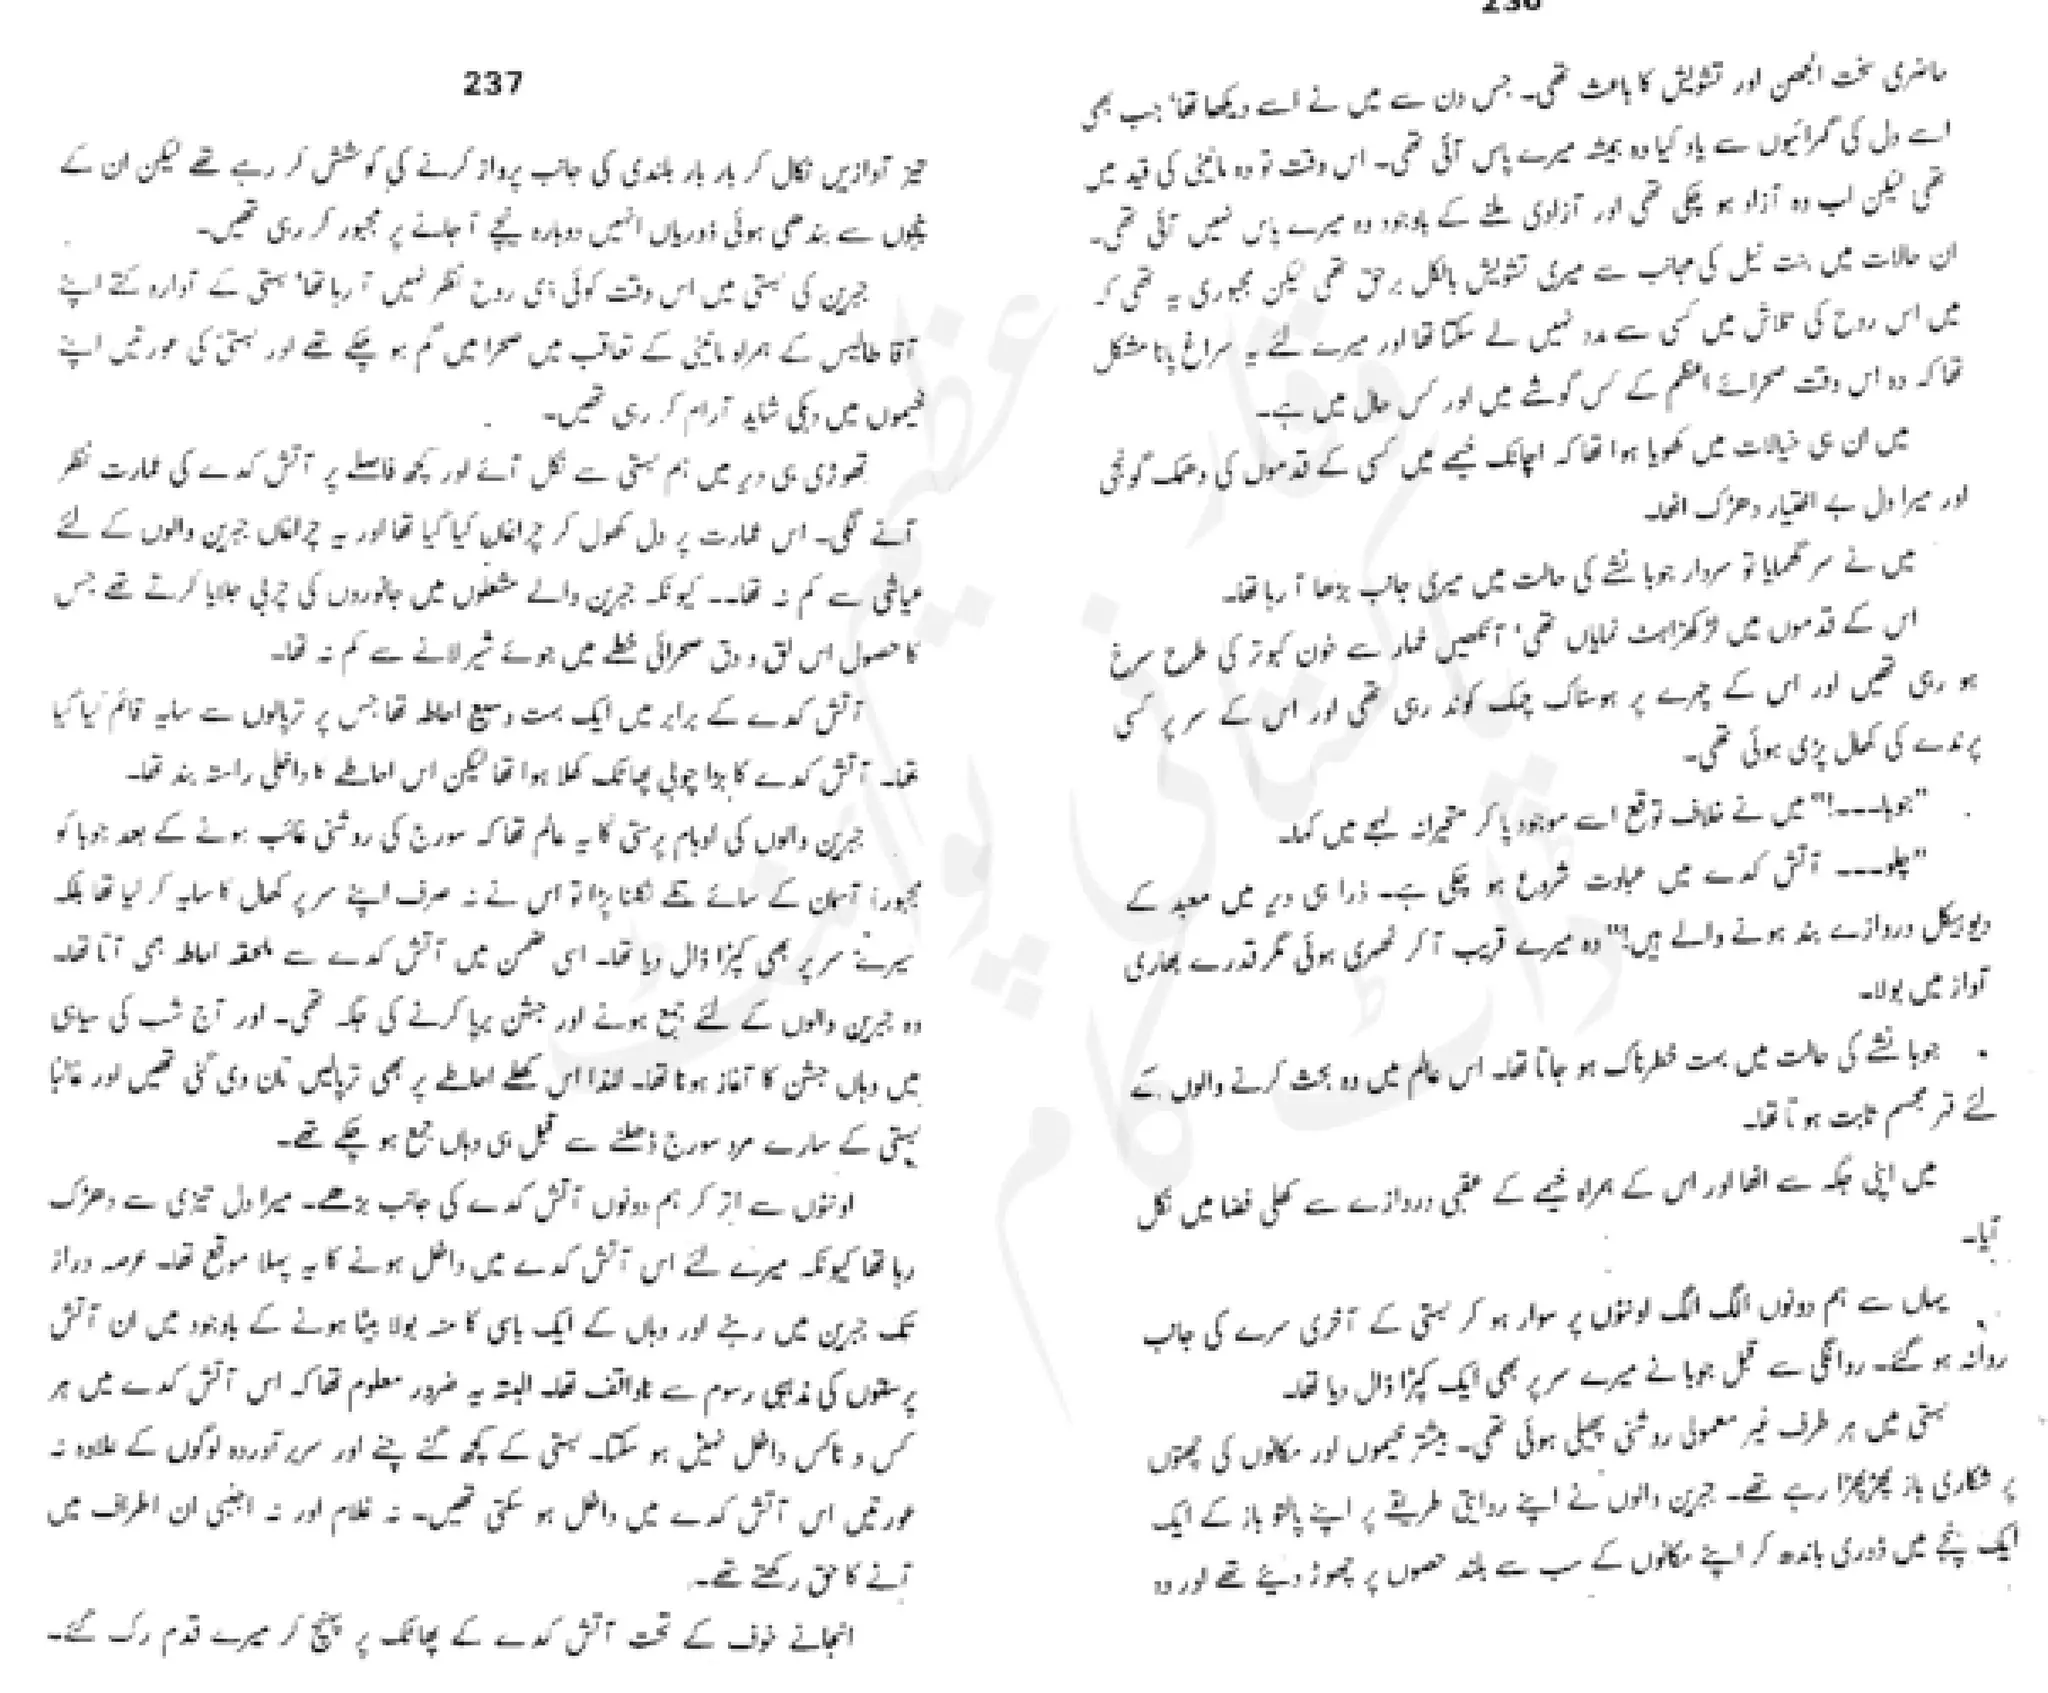 236
حاضری سخت الجھن اور تشویش کا باعث تھی۔ جس دن سے میں نے اسے دیکھا تھا' جب بھی
اسے دل کی گہرائیوں سے یاد کیا وہ ہمیشہ میرے پاس آئی تھی۔ اس وقت تو وہ مایٹنی کی قید میں
تھی لیکن اب وہ آزاد ہو چکی تھی اور آزادی ملنے کے باوجود وہ میرے پاس نہیں آئی تھی۔
ان حالات میں بنت نیل کی جانب سے میری تشویش بالکل برحق تھی لیکن مجبوری یہ تھی کہ
میں اس روح کی تلاش میں کسی سے مدد نہیں لے سکتا تھا اور میرے لئے یہ سراغ پانا مشکل
تھا کہ وہ اس وقت صحرائے اعظم کے کس گوشے میں اور کس حال میں ہے۔
میں ان ہی خیالات میں کھویا ہوا تھا کہ اچانک خیمے میں کسی کے قدموں کی دھمک گونجی
اور میرا دل بے اختیار دھڑک اٹھا۔
میں نے سر گھمایا تو سردار جوبا نشے کی حالت میں میری جانب بڑھا آ رہا تھا۔
اس کے قدموں میں لڑکھڑاہٹ نمایاں تھی' آنکھیں خمار سے خون کبوتر کی طرح سرخ
ہو رہی تھیں اور اس کے چہرے پر ہوسناک چمک کوند رہی تھی اور اس کے سر پر کسی
پرندے کی کھال پڑی ہوئی تھی۔
"جوبا۔۔۔!" میں نے خلاف توقع اسے موجود پا کر متحیرانہ لہجے میں کہا۔
"چلو۔۔۔ آتش کدے میں عبادت شروع ہو چکی ہے۔ ذرا ہی دیر میں معبد کے
دیوہیکل دروازے بند ہونے والے ہیں!" وہ میرے قریب آ کر ٹھہری ہوئی مگر قدرے بھاری
آواز میں بولا۔
جوبا نشے کی حالت میں بہت خطرناک ہو جاتا تھا۔ اس عالم میں وہ بحث کرنے والوں کے
لئے قہر مجسم ثابت ہوتا تھا۔
میں اپنی جگہ سے اٹھا اور اس کے ہمراہ خیمے کے عقبی دروازے سے کھلی فضا میں نکل
آیا۔
یہاں سے ہم دونوں الگ الگ اونٹوں پر سوار ہو کر بستی کے آخری سرے کی جانب
روانہ ہو گئے۔ روانگی سے قبل جوبا نے میرے سر پر بھی ایک کپڑا ڈال دیا تھا۔
بستی میں ہر طرف غیر معمولی روشنی پھیلی ہوئی تھی۔ بیشتر خیموں اور مکانوں کی چھتوں
پر شکاری باز پھڑپھڑا رہے تھے۔ جبرین والوں نے اپنے روایتی طریقے پر اپنے پالتو باز کے ایک
ایک پنجے میں ڈوری باندھ کر اپنے مکانوں کے سب سے بلند حصوں پر چھوڑ دیئے تھے اور وہ
237
تیز آوازیں نکال کر بار بار بلندی کی جانب پرواز کرنے کی کوشش کر رہے تھے لیکن ان کے
پنجوں سے بندھی ہوئی ڈوریاں انہیں دوبارہ نیچے آ جانے پر مجبور کر رہی تھیں۔
جبرین کی بستی میں اس وقت کوئی ذی روح نظر نہیں آ رہا تھا' بستی کے آوارہ کتے اپنے
آقا طالیس کے ہمراہ مایٹنی کے تعاقب میں صحرا میں گم ہو چکے تھے اور بستی کی عورتیں اپنے
خیموں میں دبکی شاید آرام کر رہی تھیں۔
تھوڑی ہی دیر میں ہم بستی سے نکل آئے اور کچھ فاصلے پر آتش کدے کی عمارت نظر
آنے لگی۔ اس عمارت پر دل کھول کر چراغاں کیا گیا تھا اور یہ چراغاں جبرین والوں کے لئے
عیاشی سے کم نہ تھا۔۔ کیونکہ جبرین والے مشعلوں میں جانوروں کی چربی جلایا کرتے تھے جس
کا حصول اس لق و دق صحرائی خطے میں جوئے شیر لانے سے کم نہ تھا۔
آتش کدے کے برابر میں ایک بہت وسیع احاطہ تھا جس پر ترپالوں سے سایہ قائم کیا گیا
تھا۔ آتش کدے کا بڑا چوبی پھاٹک کھلا ہوا تھا لیکن اس احاطے کا داخلی راستہ بند تھا۔
جبرین والوں کی اوہام پرستی کا یہ عالم تھا کہ سورج کی روشنی غائب ہونے کے بعد جوبا کو
مجبوراً آسمان کے سائے تلے نکلنا پڑا تو اس نے نہ صرف اپنے سر پر کھال کا سایہ کر لیا تھا بلکہ
میرے سر پر بھی کپڑا ڈال دیا تھا۔ اسی ضمن میں آتش کدے سے ملحقہ احاطہ بھی آتا تھا۔
وہ جبرین والوں کے لئے جمع ہونے اور جشن برپا کرنے کی جگہ تھی۔ اور آج شب کی سیاہی
میں وہاں جشن کا آغاز ہونا تھا۔ لہٰذا اس کھلے احاطے پر بھی ترپالیں تان دی گئی تھیں اور غالباً
بستی کے سارے مرد سورج ڈھلنے سے قبل ہی وہاں جمع ہو چکے تھے۔
اونٹوں سے اتر کر ہم دونوں آتش کدے کی جانب بڑھے۔ میرا دل تیزی سے دھڑک
رہا تھا کیونکہ میرے لئے اس آتش کدے میں داخل ہونے کا یہ پہلا موقع تھا۔ عرصہ دراز
تک جبرین میں رہنے اور وہاں کے ایک باسی کا منہ بولا بیٹا ہونے کے باوجود میں ان آتش
پرستوں کی مذہبی رسوم سے ناواقف تھا۔ البتہ یہ ضرور معلوم تھا کہ اس آتش کدے میں ہر
کس و ناکس داخل نہیں ہو سکتا۔ بستی کے کچھ گنے چنے اور سربرآوردہ لوگوں کے علاوہ نہ
عورتیں اس آتش کدے میں داخل ہو سکتی تھیں۔ نہ غلام اور نہ اجنبی ان اطراف میں
آنے کا حق رکھتے تھے۔
انجانے خوف کے تحت آتش کدے کے پھاٹک پر پہنچ کر میرے قدم رک گئے۔
وقار عظیم
پاکستانی پوائنٹ
ڈاٹ کام